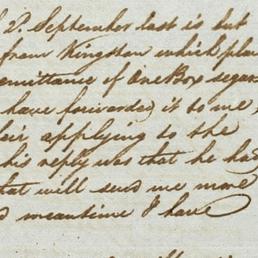 2d. September last is but
from Kingston which place
remittance of One Box segars
have forwarded it to me
applying to the
his reply was that he had
that will send me more
meantime I have